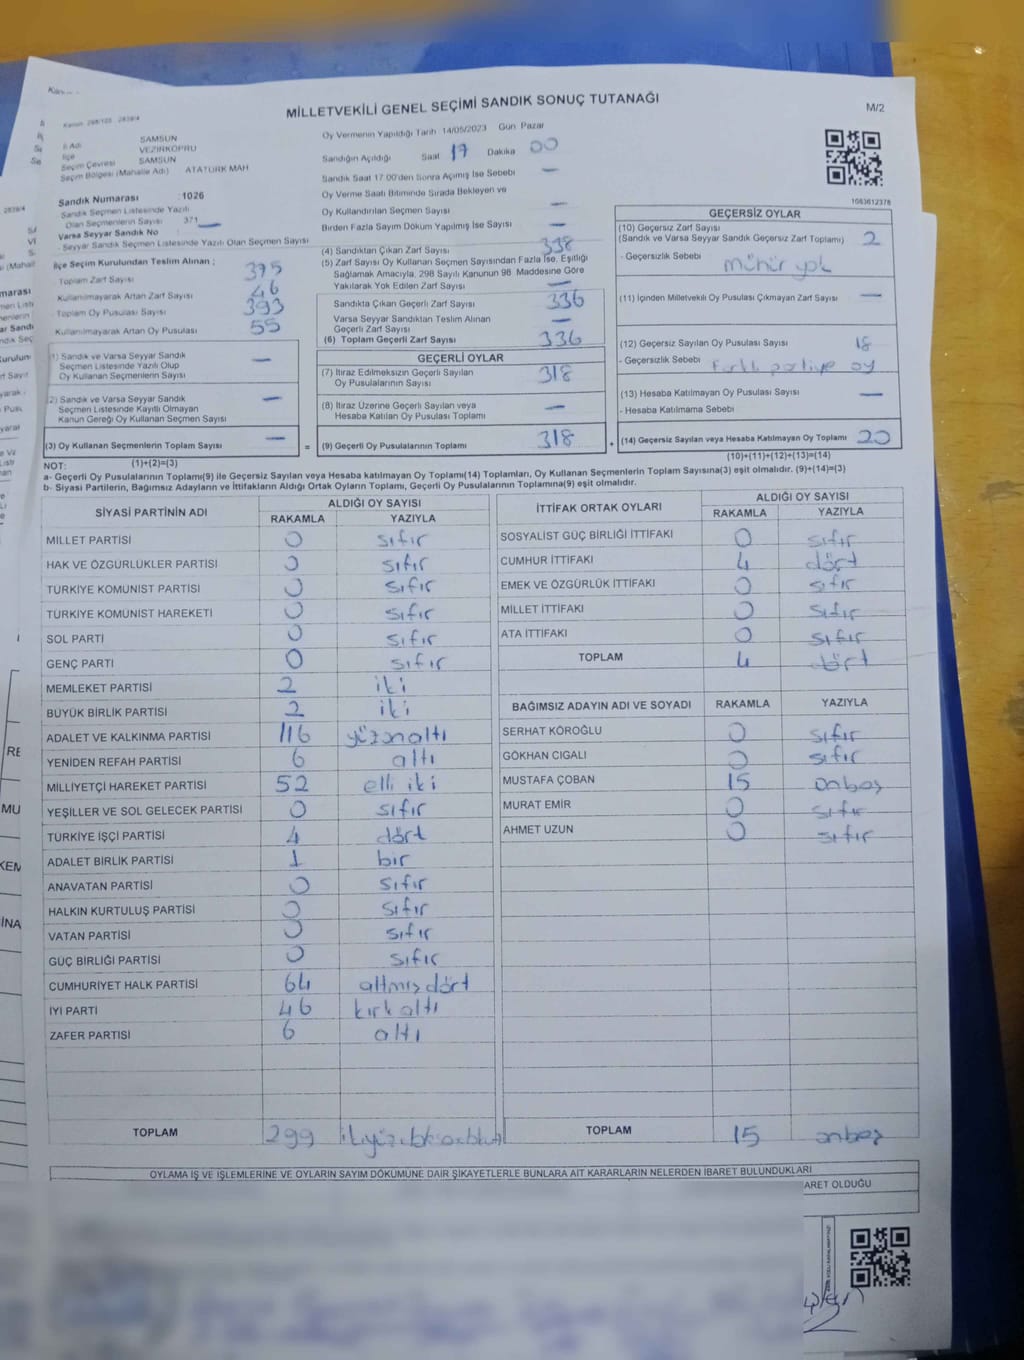 MİLLETVEKİLİ GENEL SEÇİMİ SANDIK SONUÇ TUTANAĞI
M/2
İl Adı SAMSUN
İlçe VEZİRKÖPRÜ
Seçim Çevresi SAMSUN
Seçim Bölgesi (Mahalle Adı) ATATÜRK MAH
Sandık Numarası :1026
Sandık Seçmen Listesinde Yazılı
Olan Seçmenlerin Sayısı 371
Varsa Seyyar Sandık No
- Seyyar Sandık Seçmen Listesinde Yazılı Olan Seçmen Sayısı
İlçe Seçim Kurulundan Teslim Alınan ;
Toplam Zarf Sayısı 375
Kullanılmayarak Artan Zarf Sayısı 46
Toplam Oy Pusulası Sayısı 393
Kullanılmayarak Artan Oy Pusulası 55
(1) Sandık ve Varsa Seyyar Sandık
Seçmen Listesinde Yazılı Olup
Oy Kullanan Seçmenlerin Sayısı —
(2) Sandık ve Varsa Seyyar Sandık
Seçmen Listesinde Kayıtlı Olmayan
Kanun Gereği Oy Kullanan Seçmen Sayısı —
(3) Oy Kullanan Seçmenlerin Toplam Sayısı —
(1)+(2)=(3)
Oy Vermenin Yapıldığı Tarih 14/05/2023 Gün Pazar
Sandığın Açıldığı Saat 17 Dakika 00
Sandık Saat 17.00'den Sonra Açımış İse Sebebi —
Oy Verme Saati Bitiminde Sırada Bekleyen ve
Oy Kullandırılan Seçmen Sayısı —
Birden Fazla Sayım Döküm Yapılmış İse Sayısı —
(4) Sandıktan Çıkan Zarf Sayısı 338
(5) Zarf Sayısı Oy Kullanan Seçmen Sayısından Fazla İse, Eşitliği
Sağlamak Amacıyla, 298 Sayılı Kanunun 98. Maddesine Göre
Yakılarak Yok Edilen Zarf Sayısı —
Sandıkta Çıkan Geçerli Zarf Sayısı 336
Varsa Seyyar Sandıktan Teslim Alınan
Geçerli Zarf Sayısı —
(6) Toplam Geçerli Zarf Sayısı 336
GEÇERLİ OYLAR
(7) İtiraz Edilmeksizin Geçerli Sayılan
Oy Pusulalarının Sayısı 318
(8) İtiraz Üzerine Geçerli Sayılan veya
Hesaba Katılan Oy Pusulası Toplamı —
= (9) Geçerli Oy Pusulalarının Toplamı 318
1063612378
GEÇERSİZ OYLAR
(10) Geçersiz Zarf Sayısı
(Sandık ve Varsa Seyyar Sandık Geçersiz Zarf Toplamı) 2
- Geçersizlik Sebebi mühür yok
(11) İçinden Milletvekili Oy Pusulası Çıkmayan Zarf Sayısı —
(12) Geçersiz Sayılan Oy Pusulası Sayısı 18
- Geçersizlik Sebebi Farklı partiye oy
(13) Hesaba Katılmayan Oy Pusulası Sayısı —
- Hesaba Katılmama Sebebi
+ (14) Geçersiz Sayılan veya Hesaba Katılmayan Oy Toplamı 20
(10)+(11)+(12)+(13)=(14)
NOT:
a- Geçerli Oy Pusulalarının Toplamı(9) ile Geçersiz Sayılan veya Hesaba katılmayan Oy Toplamı(14) Toplamları, Oy Kullanan Seçmenlerin Toplam Sayısına(3) eşit olmalıdır. (9)+(14)=(3)
b- Siyasi Partilerin, Bağımsız Adayların ve İttifakların Aldığı Ortak Oyların Toplamı, Geçerli Oy Pusulalarının Toplamına(9) eşit olmalıdır.
SİYASİ PARTİNİN ADI ALDIĞI OY SAYISI
RAKAMLA YAZIYLA
MİLLET PARTİSİ 0 sıfır
HAK VE ÖZGÜRLÜKLER PARTİSİ 0 sıfır
TÜRKİYE KOMÜNİST PARTİSİ 0 sıfır
TÜRKİYE KOMÜNİST HAREKETİ 0 sıfır
SOL PARTİ 0 sıfır
GENÇ PARTİ 0 sıfır
MEMLEKET PARTİSİ 2 iki
BÜYÜK BİRLİK PARTİSİ 2 iki
ADALET VE KALKINMA PARTİSİ 116 yüzonaltı
YENİDEN REFAH PARTİSİ 6 altı
MİLLİYETÇİ HAREKET PARTİSİ 52 elli iki
YEŞİLLER VE SOL GELECEK PARTİSİ 0 sıfır
TÜRKİYE İŞÇİ PARTİSİ 4 dört
ADALET BİRLİK PARTİSİ 1 bir
ANAVATAN PARTİSİ 0 sıfır
HALKIN KURTULUŞ PARTİSİ 0 sıfır
VATAN PARTİSİ 0 sıfır
GÜÇ BİRLİĞİ PARTİSİ 0 sıfır
CUMHURİYET HALK PARTİSİ 64 altmış dört
İYİ PARTİ 46 kırk altı
ZAFER PARTİSİ 6 altı
TOPLAM 299
İTTİFAK ORTAK OYLARI ALDIĞI OY SAYISI
RAKAMLA YAZIYLA
SOSYALİST GÜÇ BİRLİĞİ İTTİFAKI 0 sıfır
CUMHUR İTTİFAKI 4 dört
EMEK VE ÖZGÜRLÜK İTTİFAKI 0 sıfır
MİLLET İTTİFAKI 0 sıfır
ATA İTTİFAKI 0 sıfır
TOPLAM 4 dört
BAĞIMSIZ ADAYIN ADI VE SOYADI RAKAMLA YAZIYLA
SERHAT KÖROĞLU 0 sıfır
GÖKHAN CIGALI 0 sıfır
MUSTAFA ÇOBAN 15 onbeş
MURAT EMİR 0 sıfır
AHMET UZUN 0 sıfır
TOPLAM 15 onbeş
OYLAMA İŞ VE İŞLEMLERİNE VE OYLARIN SAYIM DÖKÜMÜNE DAİR ŞİKAYETLERLE BUNLARA AİT KARARLARIN NELERDEN İBARET BULUNDUKLARI
ARET OLDUĞU